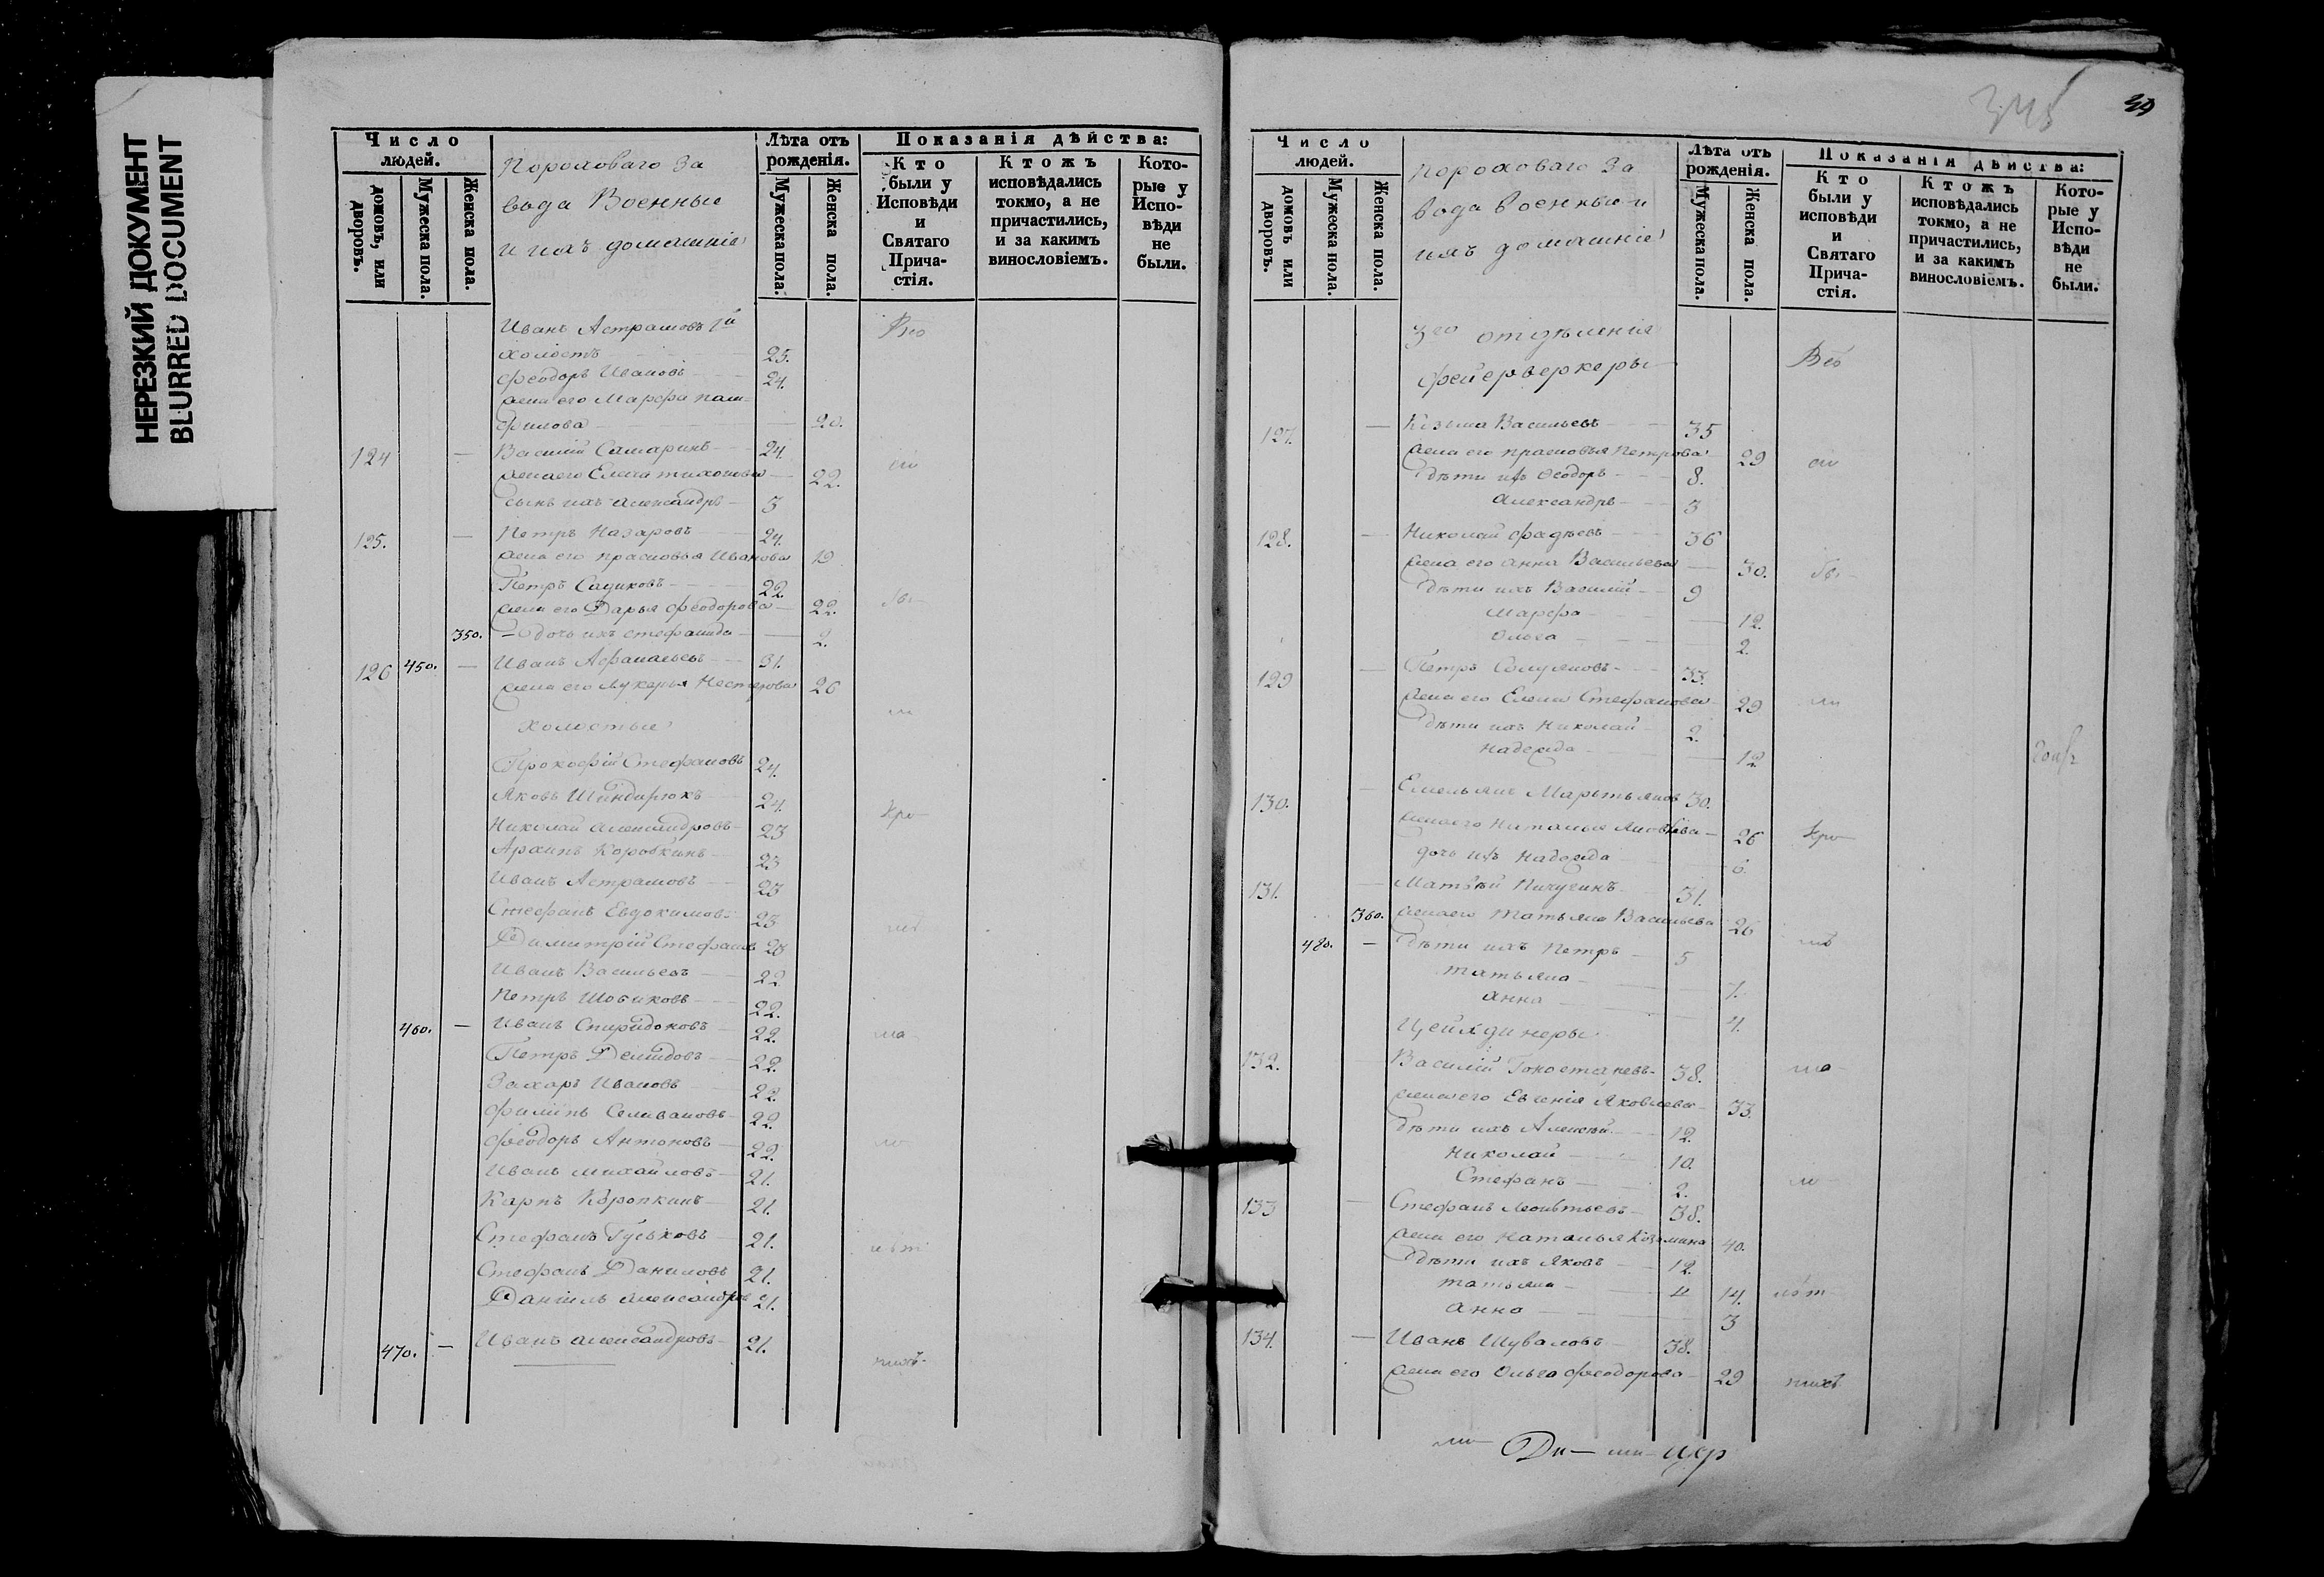 НЕРЕЗКИЙ ДОКУМЕНТ
BLURRED DOCUMENT
Число людей.
домовъ, или дворовъ.
Мужеска пола.
Женска пола.
Пороховаго За
вода Военные
и ихъ домашніе
Лѣта отъ рожденія.
Мужеска пола.
Женска пола.
Показанія дѣйства:
Кто были у Исповѣди и Святаго Прича-стія.
Ктожъ исповѣдались токмо, а не причастились, и за какимъ винословіемъ.
Кото-рые у Испо-вѣди не были.
Иванъ Астрамовъ 1й
холостъ 25.
Феодоръ Ивановъ 24.
жена его Марфа Пам=
филова 20.
124 — Василій Самаринъ 24.
жена его Елена Тихонова 22.
сынъ ихъ Александръ 3
125. — Петръ Назаровъ 24.
жена его Прасковья Иванова 19
Петръ Садиковъ 22.
жена его Дарья Феодорова 22.
350. — дочь ихъ Стефанида 2.
126 450. — Иванъ Афанасьевъ 31.
жена его Лукерья Нестерова 26
холостые
Прокофій Стефановъ 24.
Яковъ 24.
Николай Александровъ 23
Архипъ Коровкинъ 23
Иванъ Астрамовъ 23
Стефанъ Евдокимовъ 23
Димитрій Стефановъ 23
Иванъ Васильевъ 22.
Петръ 22.
460. — Иванъ Спиридоновъ 22.
Петръ Демидовъ 22.
Захаръ Ивановъ 22.
Филипъ Селивановъ 22.
Феодоръ Антоновъ 22.
Иванъ Михайловъ 21.
Карпъ Коропкинъ 21.
Стефанъ Гуськовъ 21.
Стефанъ Даниловъ 21.
Даніилъ Александровъ 21.
470. — Иванъ Александровъ 21.
345
39
Число людей.
домовъ или дворовъ.
Мужеска пола.
Женска пола.
Пороховаго За
вода Военные и
ихъ домашніе
Лѣта отъ рожденія.
Мужеска пола.
Женска пола.
Показанія дѣйства:
Кто были у исповѣди и Святаго Прича-стія.
Ктожъ исповѣдались токмо, а не причастились, и за какимъ винословіемъ.
Кото-рые у Испо-вѣди не были.
3го отдѣленія
фейерверкеры
127. — Козьма Васильевъ 35
жена его Прасковья Петрова 29
дѣти ихъ Феодоръ 8.
Александръ 3
128. — Николай Фадѣевъ 36
жена его Анна Васильева 30.
дѣти ихъ Василій 9
Марфа 12.
Ольга 2.
129 — Петръ 33.
жена его Елена Стефанова 29
дѣти ихъ Николай 2.
Надежда 12
130. — Емельянъ Мартьяновъ 30.
жена его Наталья Яковлева 26
дочь ихъ Надежда 6.
131. — Матвѣй Пичугинъ 31.
360. жена его Татьяна Васильева 26
480. — дѣти ихъ Петръ 5
Татьяна 7.
Анна 4.
Цейхдинеры
132. Василій Гоностаревъ 38.
жена его Евгенія Яковлева 33.
дѣти ихъ Алексѣй 12.
Николай 10.
Стефанъ 2.
133 — Стефанъ Леонтьевъ 38.
жена его Наталья Козьмина 40.
дѣти ихъ Яковъ 12.
Татьяна 14.
Анна 3
134. — Иванъ Шуваловъ 38.
жена его Ольга Феодорова 29